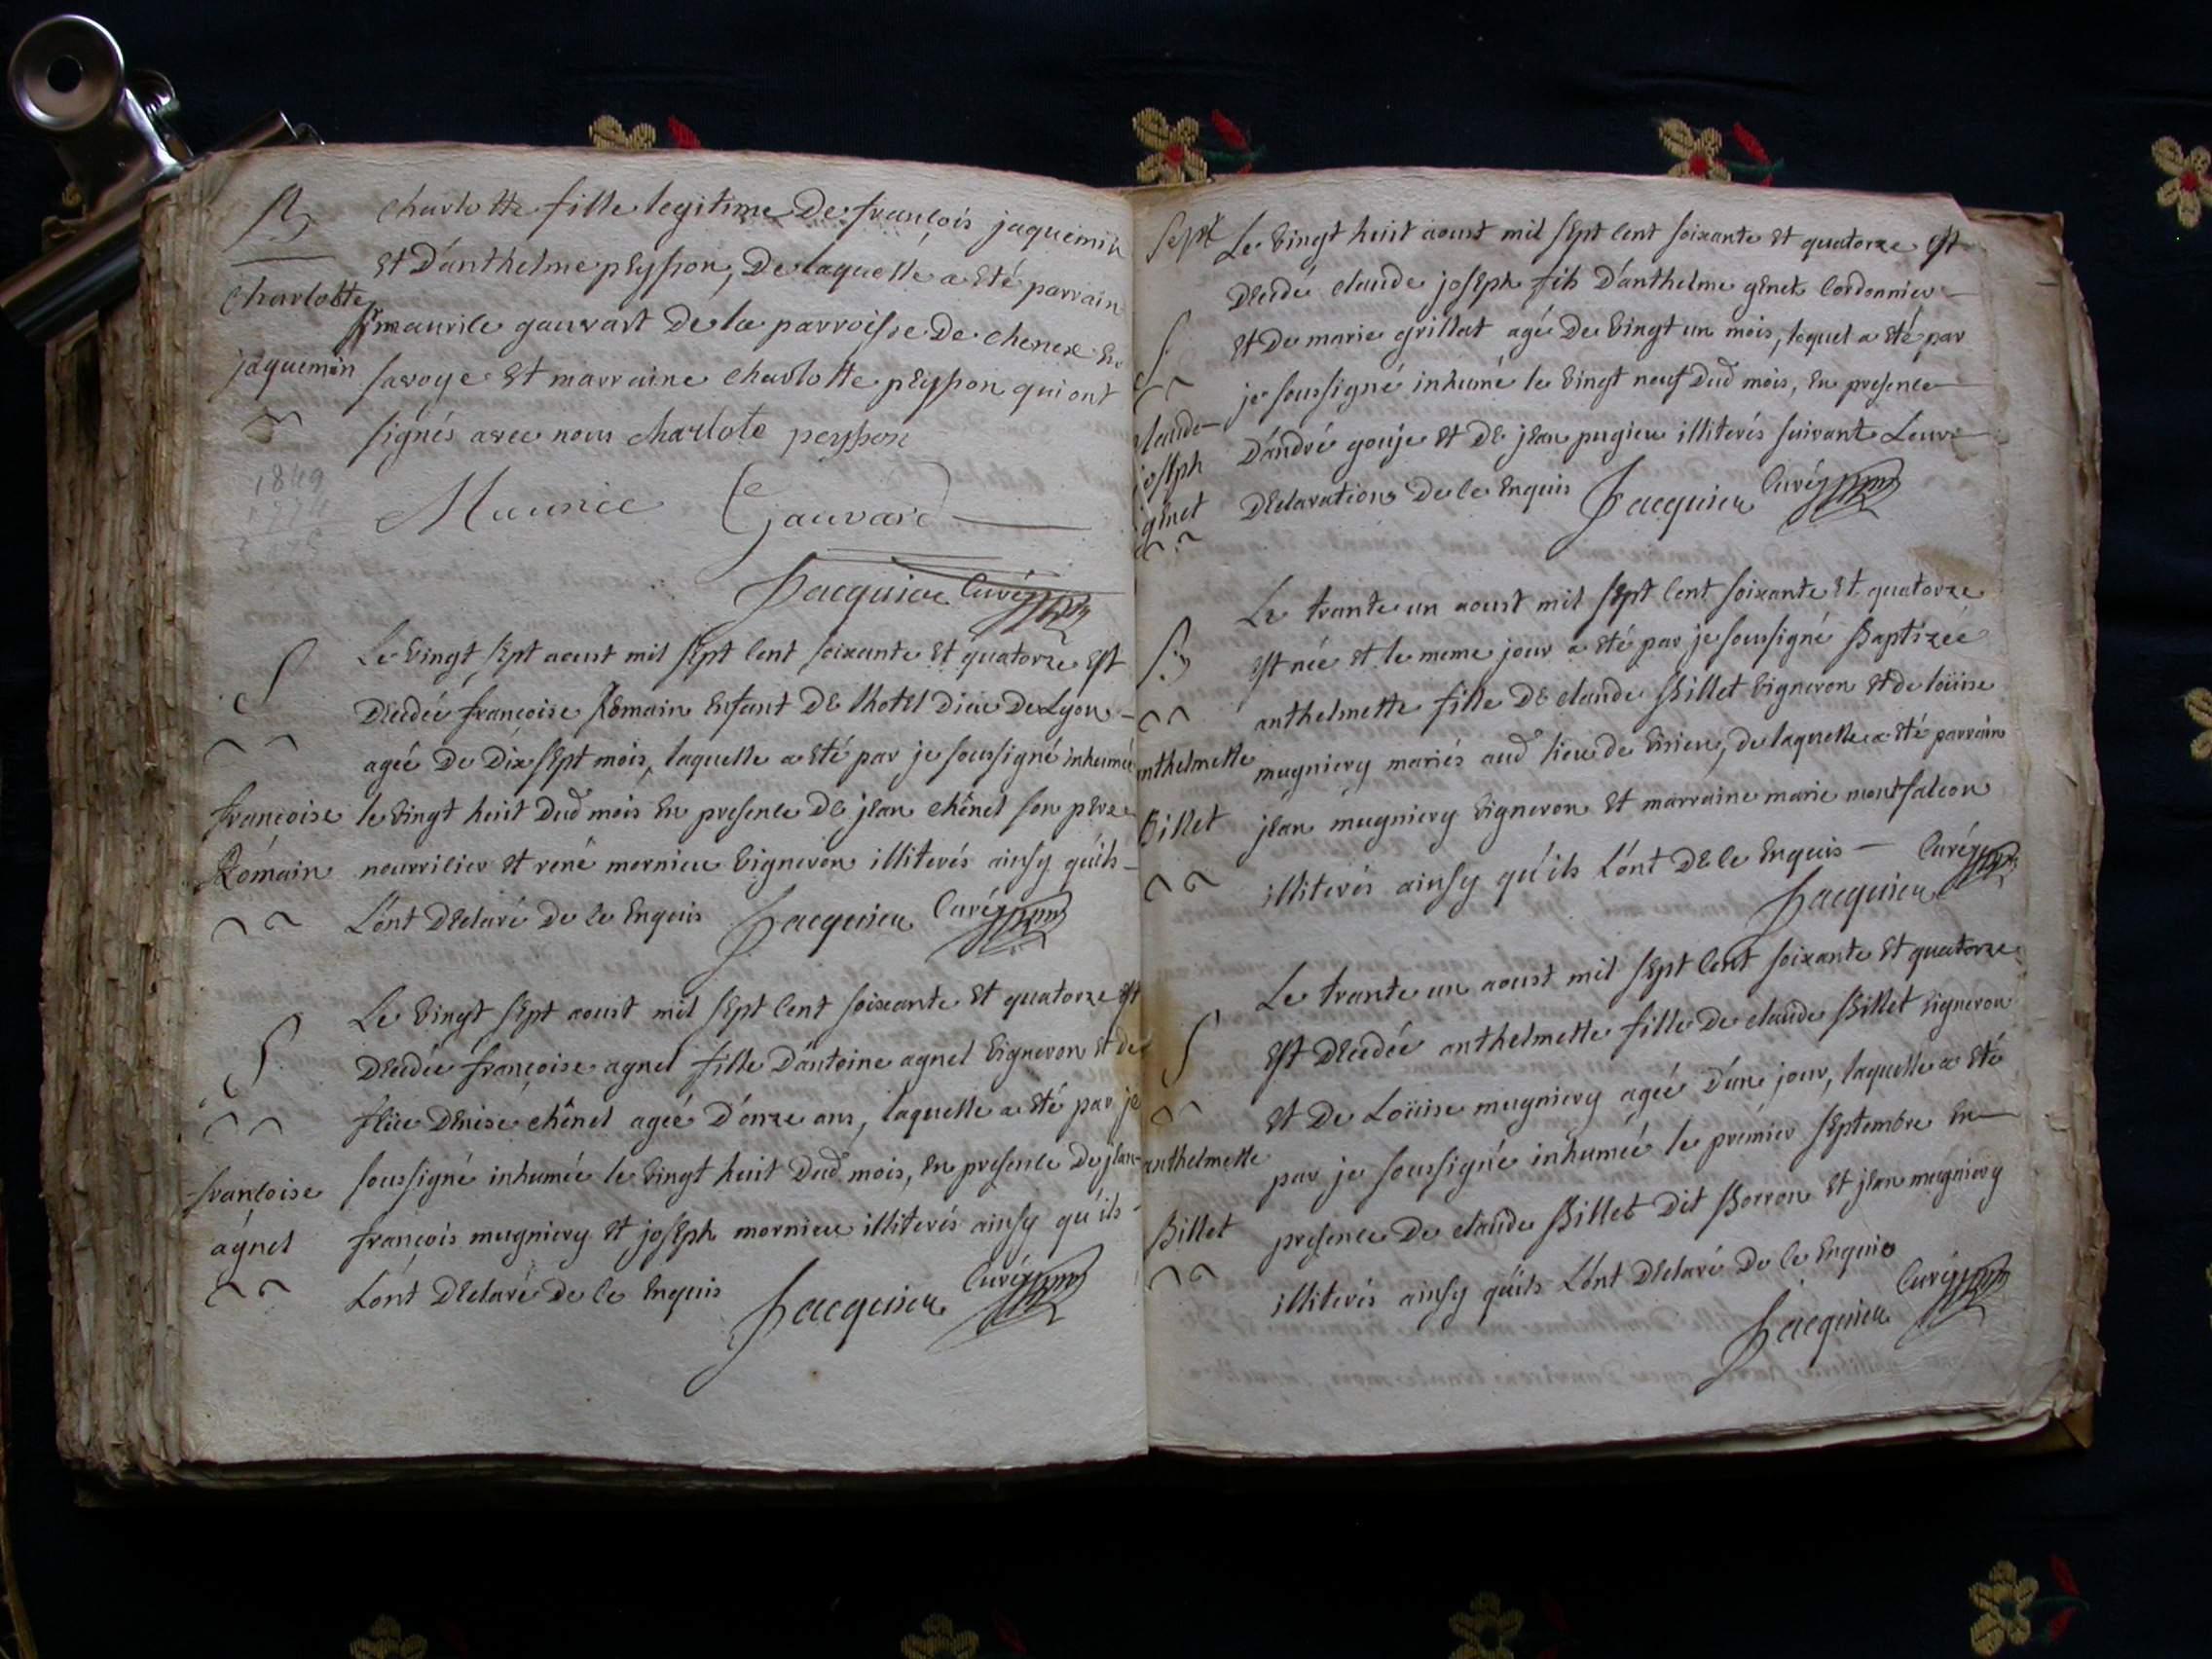 B
Charlotte
jaquemin
charlotte fille legitime De françois jaquemin
Et D'anthelme peysson, De laquelle a Eté parrain
Sr maurile gauvart De la parroisse De chenex En
savoye Et marraine charlotte peysson qui ont
signés avec nous charlote peysson
Maurice Gauvard
Jacquieu Curé
1849
1774
S
françoise
Romain
Le vingt sept aoust mil sept cent soixante Et quatorze Est
Decedée françoise Romain Enfant De lhotel Dieu De Lyon
ageé De Dix sept mois, laquelle a Eté par je soussigné inhumée
le vingt huit Dud mois En presence De jean chênel son pere
nourricier Et rené mornieu vigneron illiterés ainsy qu'ils
L'ont Declaré De ce Enquis Jacquieu Curé
S
françoise
agnel
Le vingt sept aoust mil sept cent soixante Et quatorze Est
Decedée françoise agnel fille D'antoine agnel vigneron Et de
Denise chênel ageé D'onze ans, laquelle a Eté par je
soussigné inhumée le vingt huit Dud mois, En presence De jean
françois mugniery Et joseph mornieu illiterés ainsy qu'ils
L'ont Declaré De ce Enquis Jacquieu Curé
Sept
S
claude
joseph
genet
Le vingt huit aoust mil sept cent soixante Et quatorze Est
Decedé claude joseph fils D'anthelme genet Cordonnier
Et De marie grillat agé De vingt un mois, lequel a Eté par
je soussigné inhumé le vingt neuf Dud mois, En presence
D'andré gouje Et De jean pugieu illiterés suivant Leur
Declaration De ce Enquis Jacquieu Curé
B
anthelmette
Billet
Le trante un aoust mil sept cent soixante Et quatorze
Est née Et le meme jour a Eté par je soussigné Baptizeé
anthelmette fille De claude Billet vigneron Et de loüise
mugniery mariés aud lieu de virieu, de laquelle a Eté parrain
jean mugniery vigneron Et marraine marie montfalcon
illiterés ainsy qu'ils L'ont De ce Enquis Curé
Jacquieu
S
anthelmette
Billet
Le trante un aoust mil sept cent soixante Et quatorze
Est Decedée anthelmette fille De claude Billet vigneron
Et De Loüise mugniery ageé D'un jour, laquelle a Eté
par je soussigné inhumeé le premier septembre En
presence De claude Billet Dit Borron Et jean mugniery
illiterés ainsy qu'ils L'ont Declaré De ce Enquis
Jacquieu Curé